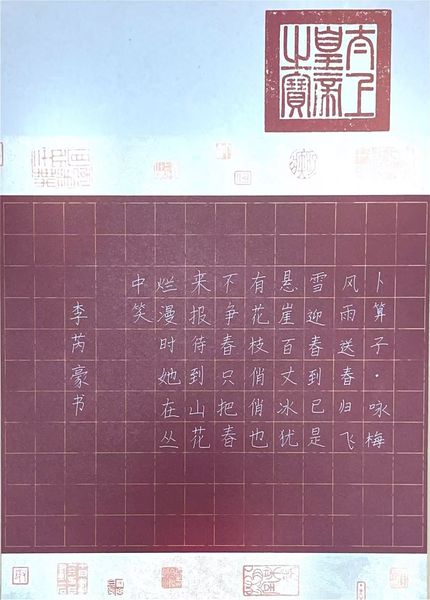 太上
皇帝
之寶
卜算子·咏梅
风雨送春归飞
雪迎春到已是
悬崖百丈冰犹
有花枝俏俏也
不争春只把春
来报待到山花
烂漫时她在丛
中笑
李芮豪书